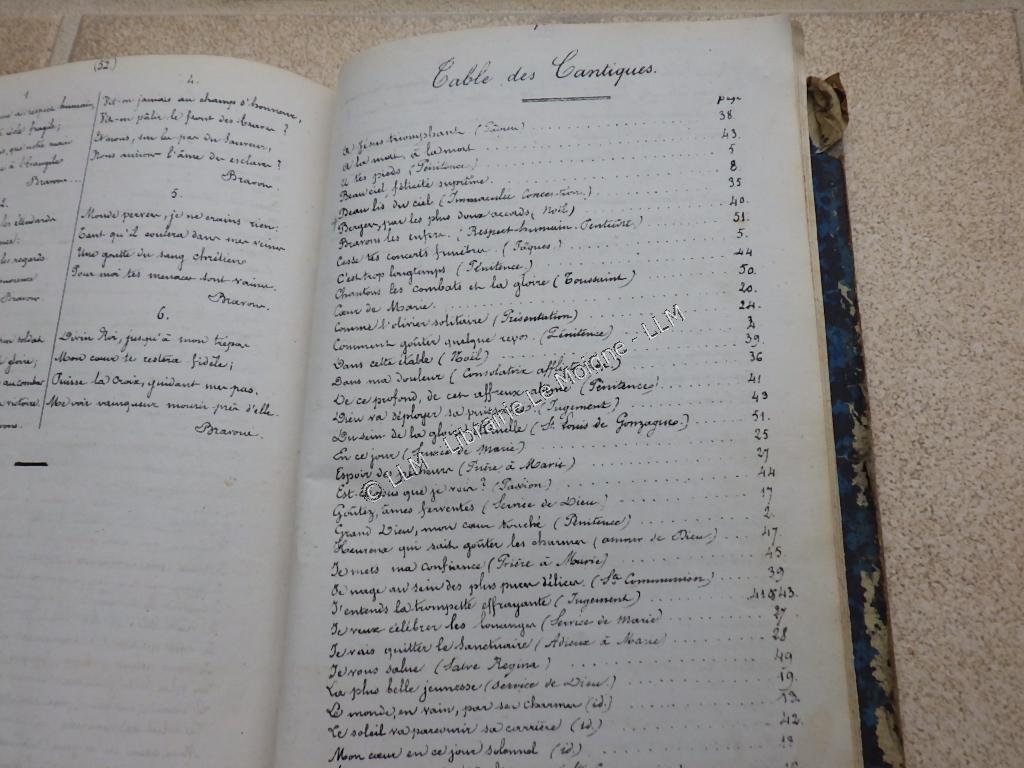 (52)
1.
respect humain,
fragile;
à l'évangile
Bravons...
2.
les étendards
les regards
Bravons
soldat
gloire;
au combat
victoire.
4.
Vit-on jamais au champ d'honneur,
Vit-on pâlir le front des braves?
Et nous, sur les pas du Sauveur,
Nous aurions l'âme des esclaves?
Bravons.
5.
Monde pervers, je ne crains rien:
Tant qu'il coulera dans mes veines
Une goutte du sang chrétien
Pour moi tes menaces sont vaines.
Bravons.
6.
Divin Roi, jusqu'à mon trépas
Mon cœur te restera fidèle;
Puisse la Croix, guidant mes pas,
Me voir vainqueur mourir près d'elle.
Bravons.
Table des Cantiques.
page
A Jésus triomphant (Pâques) 38.
A la mort, à la mort 43.
A tes pieds (Pénitence) 5
Beau ciel félicité suprême. 8.
Beau lis du ciel (Immaculée Conception.) 35
Bergers, par les plus doux accords (Noël) 40.
Bravons les enfers. (Respect humain. Pentecôte) 51.
Cesse tes concerts funèbres (Pâques.) 5.
C'est trop longtemps (Pénitence) 44
Chantons les combats et la gloire (Toussaint) 50.
Cœur de Marie. 20.
Comme l'olivier solitaire (Présentation) 24.
Comment goûter quelque repos. (Pénitence)
Dans cette étable (Noël) 39.
Dans ma douleur (Consolatrix afflictorum) 36
De ce profond, de cet affreux abîme (Pénitence) 41
Dieu va déployer sa puissance (Jugement) 43
Du sein de la gloire éternelle (St Louis de Gonzague.) 51.
En ce jour (Service de Marie) 25
Espoir des pécheurs (Prière à Marie) 27
Est-ce vous que je vois? (Passion) 44
Goûtez, âmes ferventes (Service de Dieu) 17
Grand Dieu, mon cœur touché (Pénitence) 2.
Heureux qui sait goûter les charmes (amour de Dieu) 47.
Je mets ma confiance (Prière à Marie) 45.
Je nage au sein des plus pures délices. (Ste Communion) 39
J'entends la trompette effrayante (Jugement) 41 & 43.
Je veux célébrer les louanges (Service de Marie) 27
Je vais quitter le Sanctuaire (Adieux à Marie) 28
Je vous salue (Salve Regina) 49
La plus belle jeunesse (Service de Dieu.) 19.
Le monde, en vain, par ses charmes (id.) 13.
Le soleil va parcourir sa carrière (id.) 42.
Mon cœur en ce jour solennel (id) 18
© LLM - Librairie Le Moigne - LLM